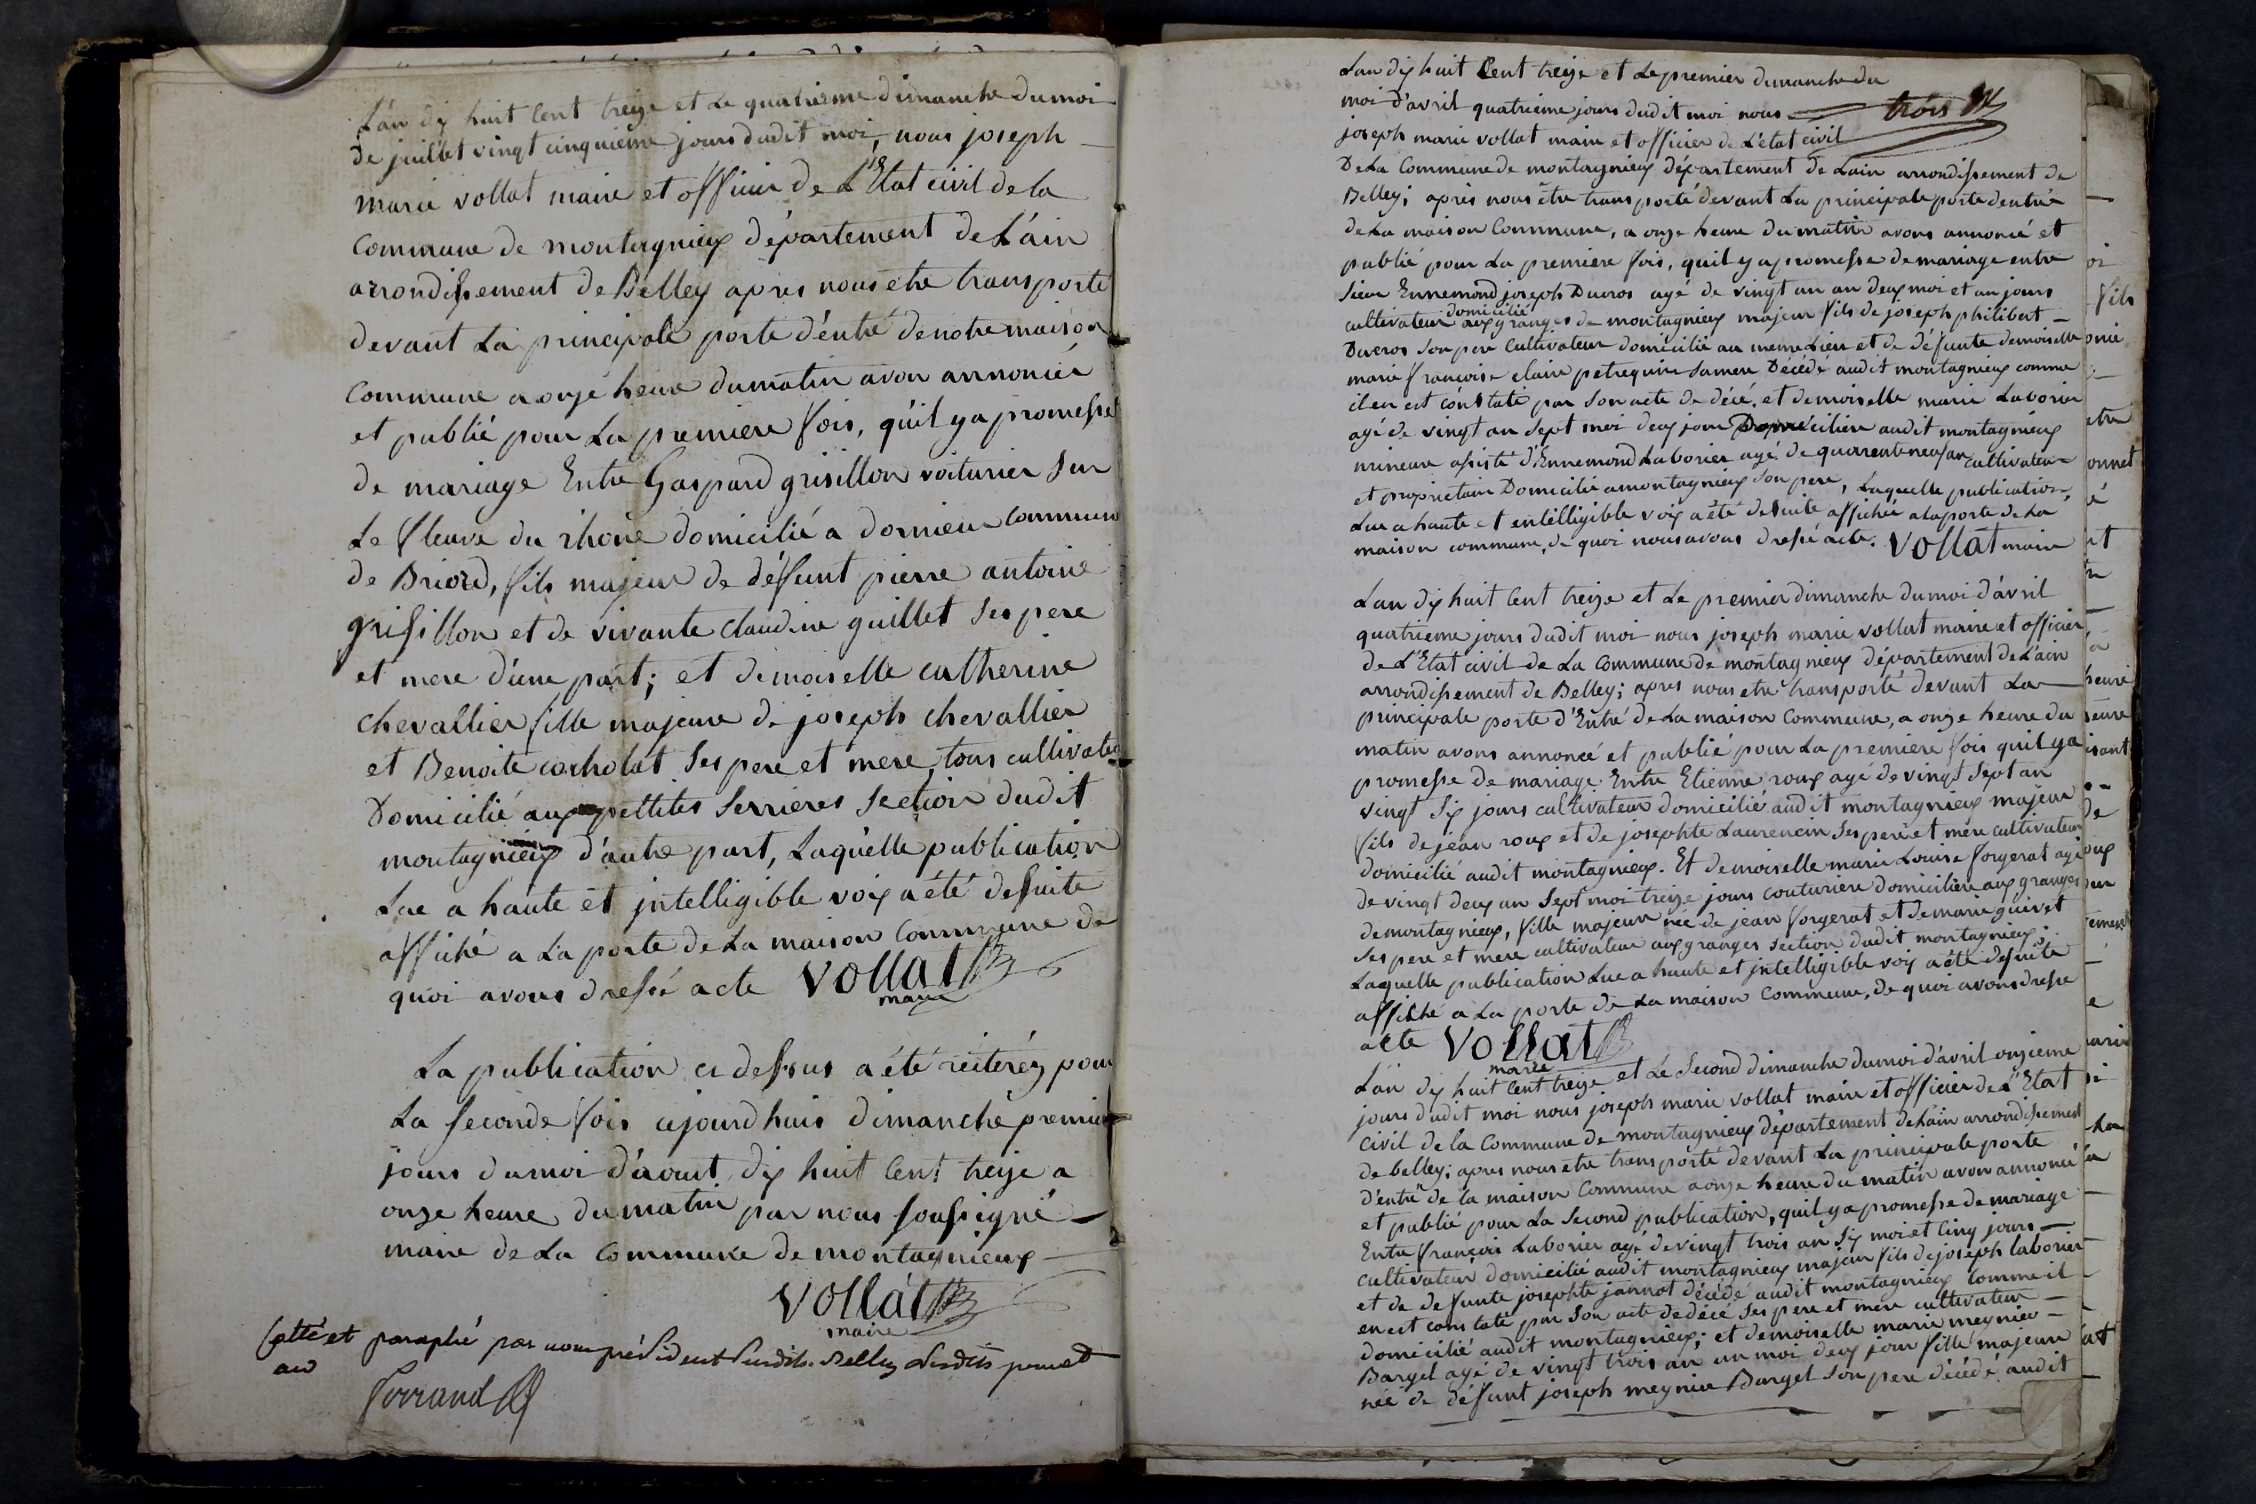 L'an dix huit Cent treize et Le quatrieme dimanche du moi
de juillet vingt cinquiéme jours dudit moi, nous joseph
marie vollat maire et officier de L'Etat civil de la
commune de montagnieux département de L'ain
arrondissement de Belley apres nous etre transporté
devant La principale porte d'entré de notre maison
commune a onze heure du matin avon annoncié
et publié pour La premiere fois, qu'il y a promesse
de mariage Entre Gaspard grisillon voiturier sur
Le fleuve du rhone domicilié a dornieu commune
de Briord, fils majeur de défunt pierre antoine
grisillon et de vivante claudine guillet ses pere
et mere d'une part; et demoiselle catherine
chevallier fille majeure de joseph chevallier
et Benoite cocholat ses pere et mere, tous cultivateu
Domicilié aux pettites serrieres section dudit
montagnieux d'autre part, Laquelle publication
Lue a haute et intelligible voix a été desuite
affiché a La porte de La maison Commune de
quoi avons dressé acte vollat
maire
La publication ci dessus a été réiteréz pour
La seconde fois cejourd huis dimanche premier
jours du moi d'aoust dix huit Cent treize a
onze heure du matin par nous soussigné
maire de La commune de montagnieux
vollat
maire
Cotté et paraphé par nous président
au
Ferrand
L'an dix huit Cent treize et Le premier dimanche du
moi d'avril quatrieme jours dudit moi nous trois
joseph marie vollat maire et officier de L'état civil
De La Commune de montagnieux département de Lain arrondissement de
Belley; aprés nous être transporté devant La principale porte dentrée
de La maison Commune, a onze heure du matin avons annoncé et
publié pour La premiere fois, quil y a promesse de mariage entre
sieur Ennemond joseph Ducros agé de vingt un an deux moi et un jours
domicilié
cultivateur aux granges de montagnieux majeur fils de joseph philibert
Ducros son pere Cultivateur domicilié au meme Lieu et de défunte demoiselle
marie françoise claire petrequin sa mere Décédé audit montagnieux comme
il en est constaté par son acte de décé, et demoiselle marie Laborier
agé de vingt an sept moi deux jour Domicilière audit montagnieux
mineure assisté d'Ennemond Laborier agé de quarrente neuf an cultivateur
et proprietaire Domicilié a montagnieux son pere, Laquelle publication,
Lue a haute et entelligible voix a été desuite affichée a la porte de La
maison commune, de quoi nous avons dressé acte. vollat maire
L'an dix huit Cent treize et Le premier dimanche du moi d'avril
quatrieme jours dudit moi nous joseph marie vollat maire et officier
de L'Etat civil de La commune de montagnieux département de L'ain
arrondissement de Belley; apres nous etre transporté devant La
principale porte d'Entré de La maison Commune, a onze heure du
matin avons annoncé et publié pour La premiere fois quil y a
promesse de mariage Entre Etienne roux agé de vingt sept an
vingt six jours cultivateur domicilié audit montagnieux majeur
fils de jean roux et de josephte Laurencin ses pere et mére cultivateur
domicilié audit montagnieux. Et demoiselle marie Louise forgerat agé
de vingt deux an sept moi treize jours couturiere domicilière aux granges
de montagnieux, fille majeur née de jean forgerat et de marie guivet
ses pere et mere cultivateur aux granges section dudit montagnieux;
Laquelle publication Lue a haute et intelligible voix a été desuite
affiché a La porte de La maison Commune, de quoi avons dressé
acte vollat
maire
L'an dix huit Cent treize et Le Second dimanche du moi d'avril onzieme
jours dudit moi nous joseph marie vollat maire et officier de L'Etat
civil de la Commune de montagnieux département de Lain arrondissement
de belley; apres nous etre transporté devant La principale porte
d'entré de la maison Commune a onze heure du matin avon annoncé
et publié pour La second publication, quil y a promesse de mariage
Entre françois Laborier agé de vingt trois an six moi et Cinq jours
cultivateur domicilié audit montagnieux majeur fils de joseph laborier
et de defunte josephte jannot décédé audit montagnieux Comme il
en est constaté par son acte de décé ses pere et mére cultivateur
domicilié audit montagnieux; et demoiselle marie meynier
Bargel agé de vingt trois an un moi deux jour fille majeure
née de défunt joseph meynier Bargel son pere décédé audit